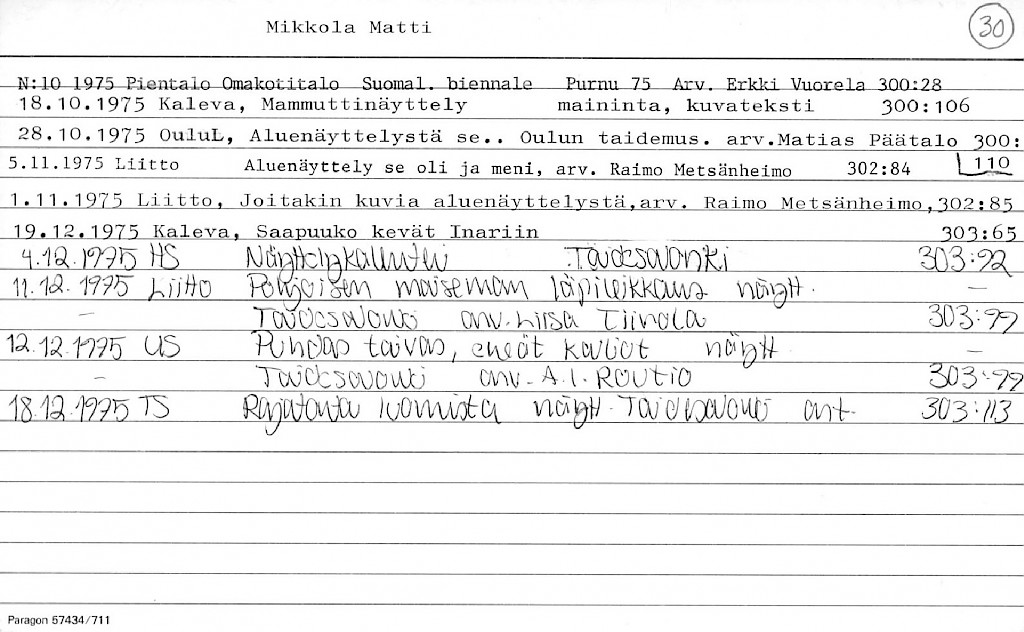 Mikkola Matti
30
N:10 1975 Pientalo Omakotitalo Suomal. biennale Purnu 75 Arv. Erkki Vuorela 300:28
18.10.1975 Kaleva, Mammuttinäyttely maininta, kuvateksti 300:106
28.10.1975 OuluL, Aluenäyttelystä se.. Oulun taidemus. arv.Matias Päätalo 300:
110
5.11.1975 Liitto Aluenäyttely se oli ja meni, arv. Raimo Metsänheimo 302:84
1.11.1975 Liitto, Joitakin kuvia aluenäyttelystä,arv. Raimo Metsänheimo,302:85
19.12.1975 Kaleva, Saapuuko kevät Inariin 303:65
4.12.1975 HS Näyttelykalenteri Taidesalonki 303:92
11.12.1975 Liitto Pohjoisen maiseman läpileikkaus näytt. –
– Taidesalonki arv. Liisa Tiirola 303:99
12.12.1975 US Puhdas taivas, eheät kalliot näytt –
– Taidesalonki arv. A.I. Routio 303:99
18.12.1975 TS Rajatonta luomista näytt. Taidesalonki art. 303:113
Paragon 57434/711